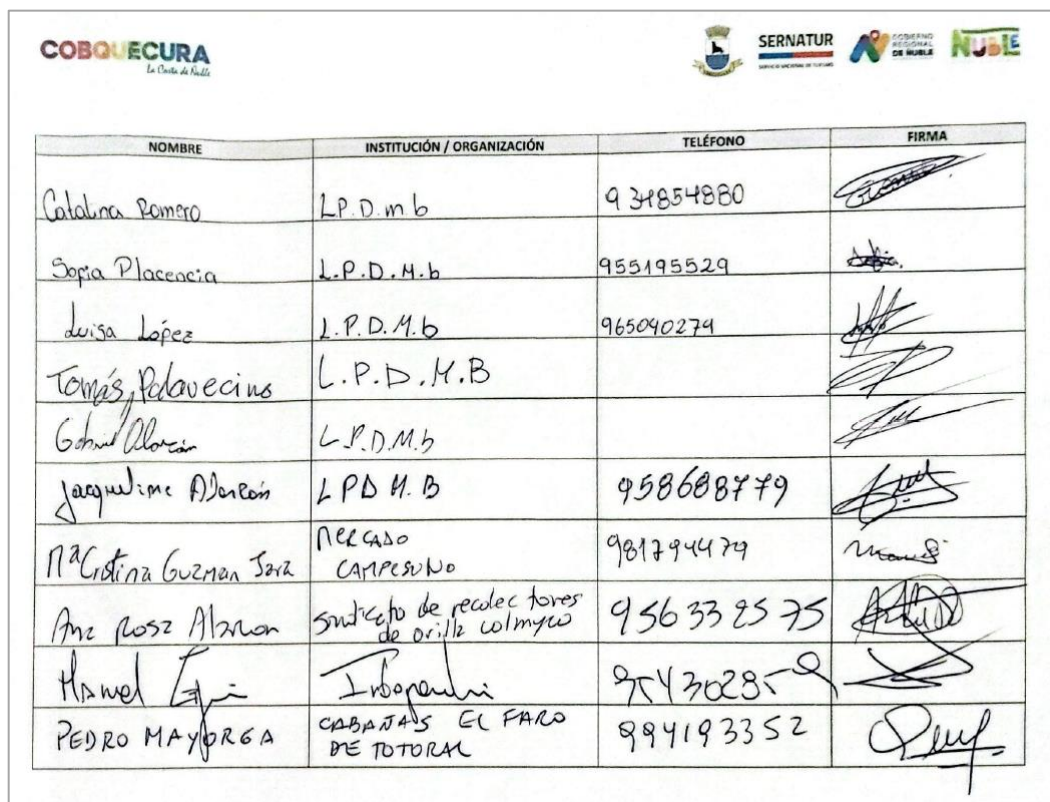 COBQUECURA
La Costa de Ñuble
SERNATUR
SERVICIO NACIONAL DE TURISMO
GOBIERNO REGIONAL DE ÑUBLE
ÑUBLE
NOMBRE INSTITUCIÓN / ORGANIZACIÓN TELÉFONO FIRMA
Catalina Romero L.P.D.m.b 931854880
Sofia Placencia L.P.D.M.b 955195529
Luisa López L.P.D.M.b 965040279
Tomás Palavecino L.P.D.M.B
Gabriel Alarcón L.P.D.M.b
Jacqueline Alarcón LPD M.B 958688779
Mª Cristina Guzman Jara MERCADO CAMPESINO 981794479
Ana Rosa Alarcon sindicato de recolectores de orilla colmuyco 956332575
Manuel
PEDRO MAYORGA CABAÑAS EL FARO DE TOTORAL 994193352